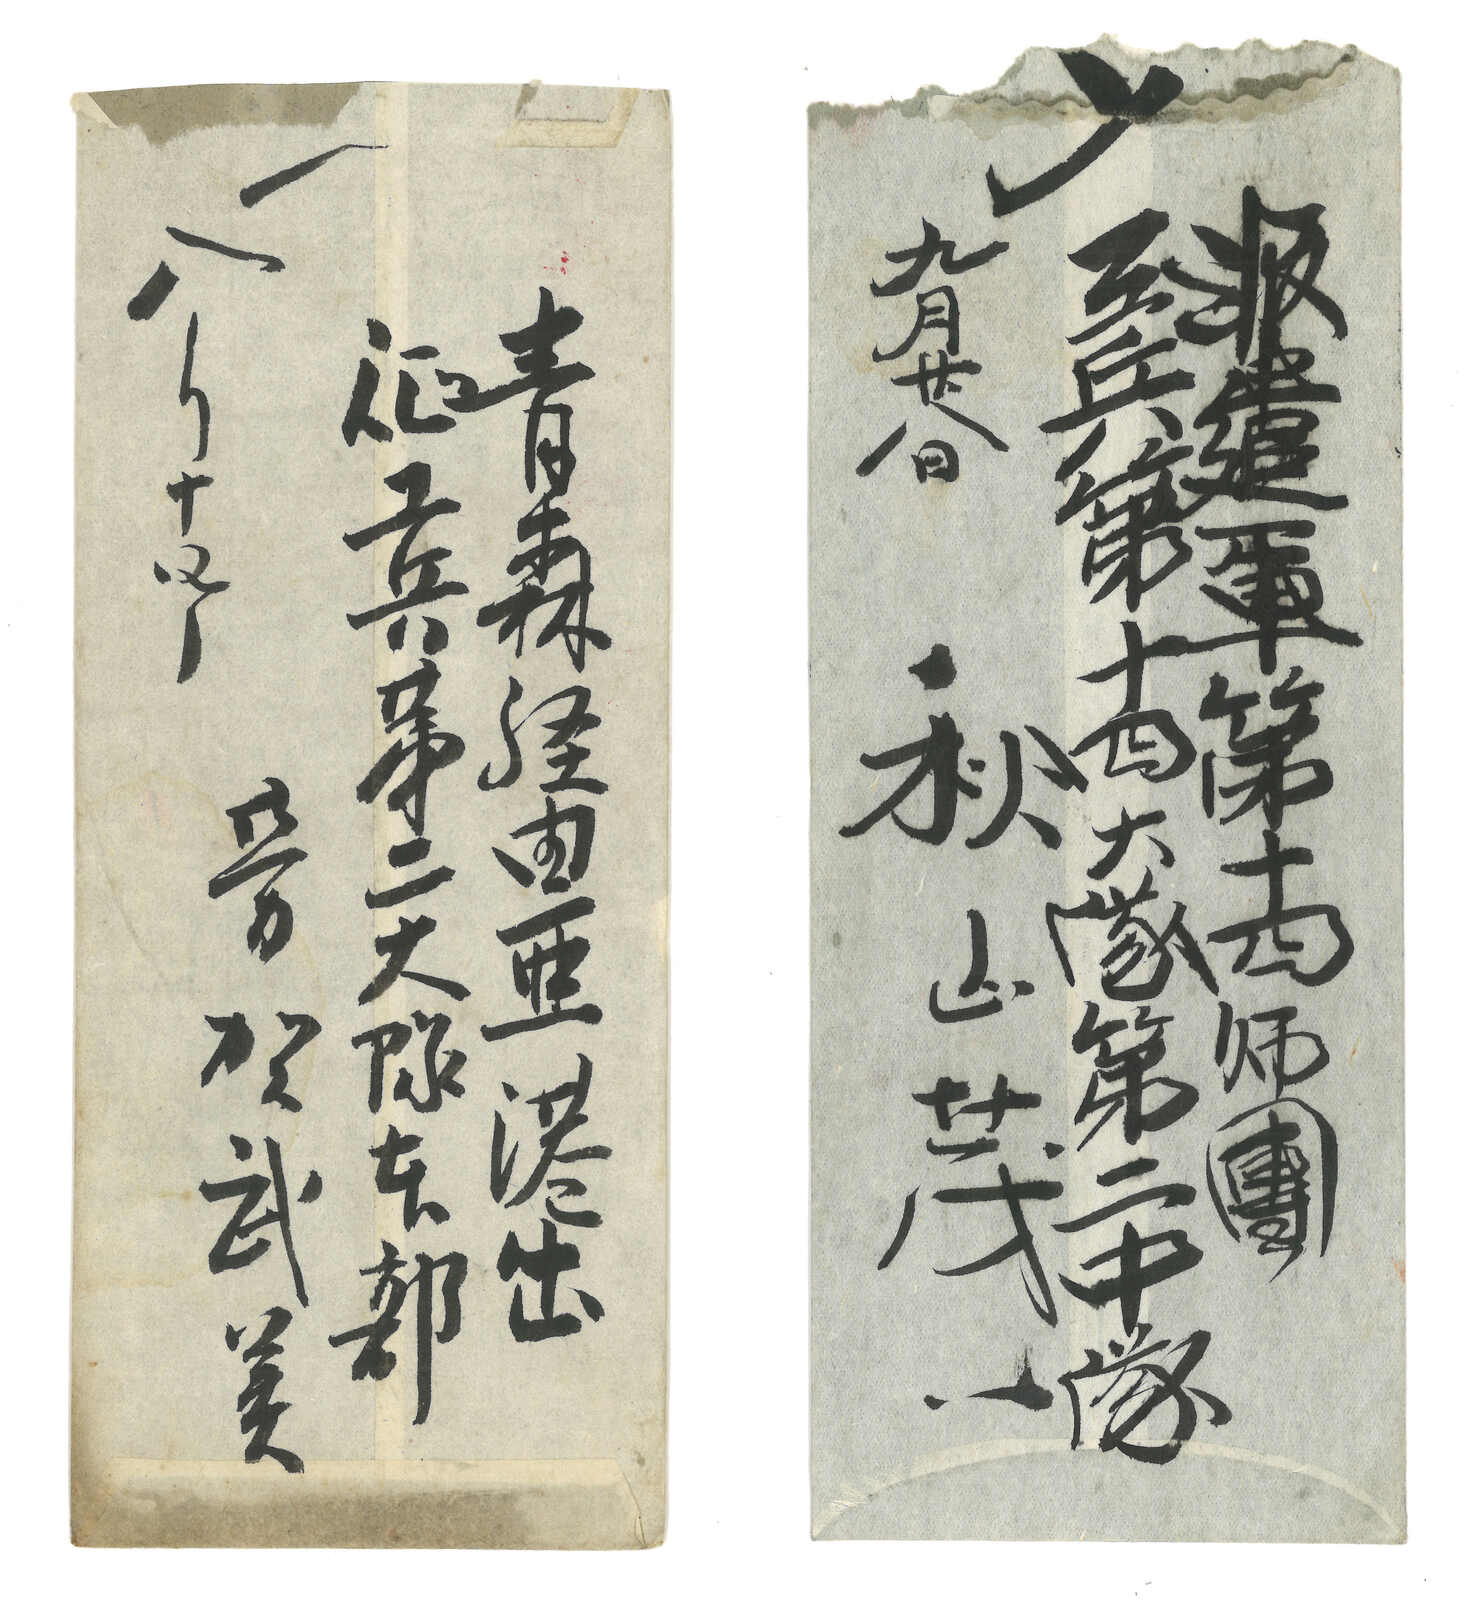 青森経由亜港出
征工兵第二大隊本部
芳賀武美
八月十四日
〆
派遣軍第十四师團
工兵第十四大隊第二中隊
秋山茂八
九月廿八日